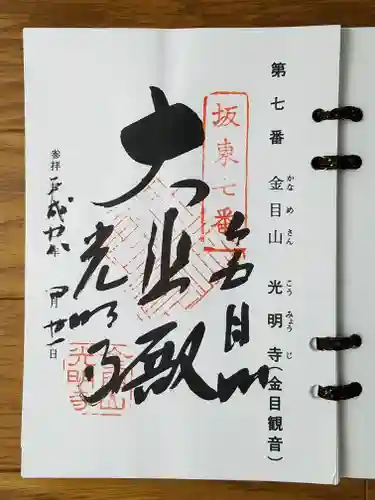 第七番 金目山 光明寺(金目観音)
かなめさん こうみょうじ
坂東七番
金目山
大悲殿
光明寺
参拝 平成廿九年 四月廿一日
金目山
光明寺